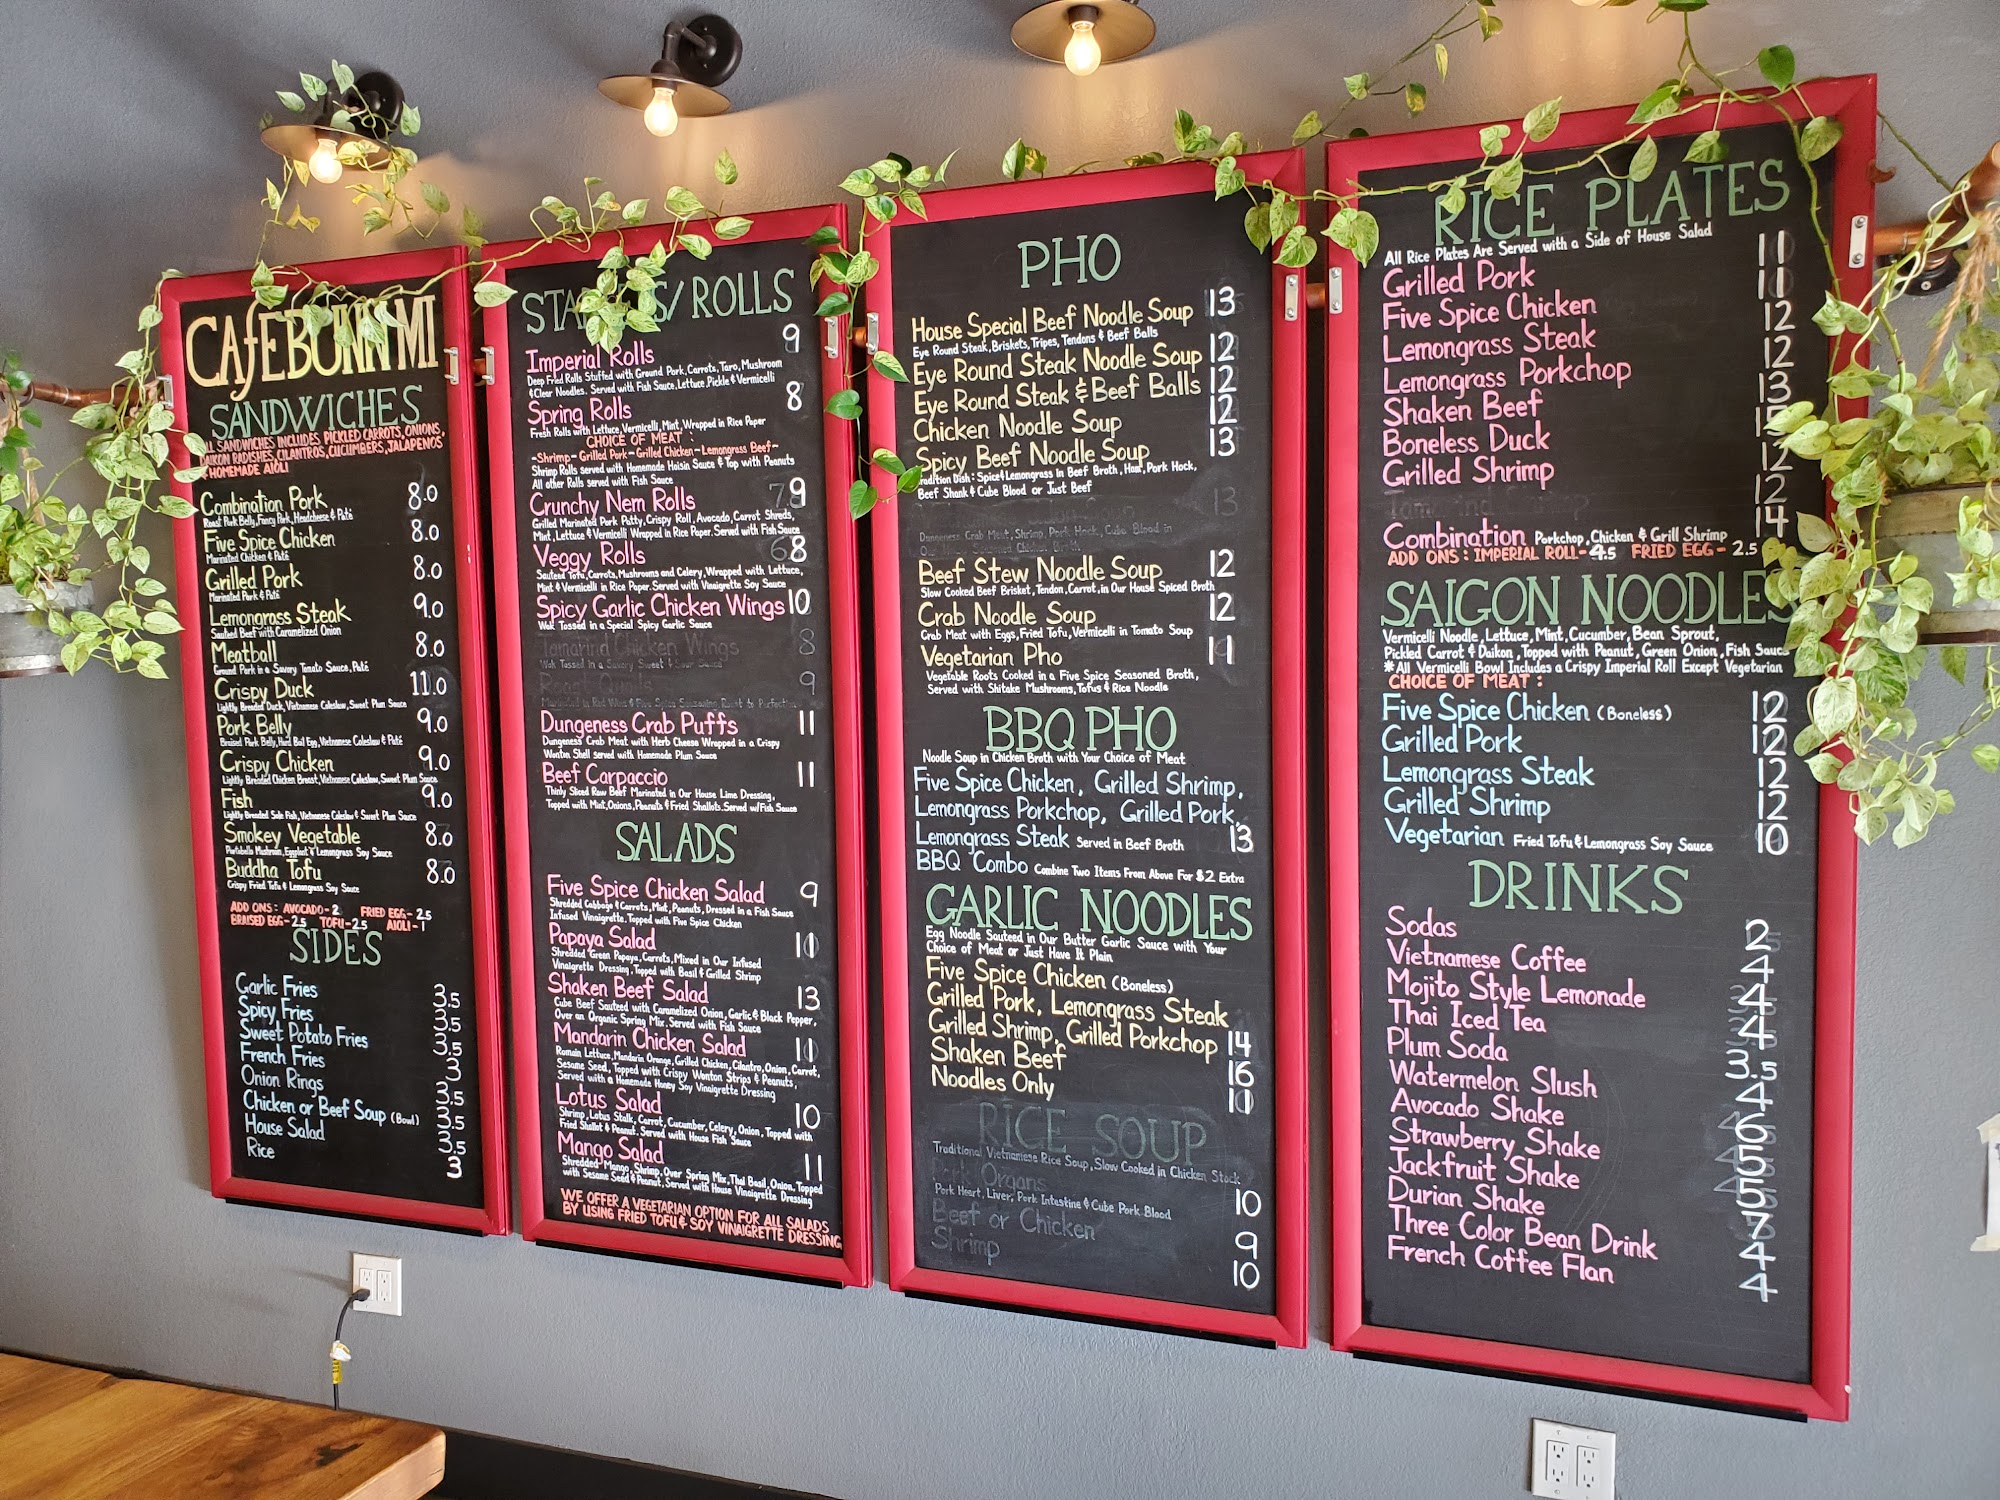 CAFE BUNN MI
SANDWICHES
ALL SANDWICHES INCLUDES PICKLED CARROTS, ONIONS,
DAIKON RADISHES, CILANTROS, CUCUMBERS, JALAPENOS
& HOMEMADE AIOLI
Combination Pork 8.0
Roast Pork Belly, Fancy Pork, Headcheese & Paté
Five Spice Chicken 8.0
Marinated Chicken & Paté
Grilled Pork 8.0
Marinated Pork & Paté
Lemongrass Steak 9.0
Sauteed Beef with Caramelized Onion
Meatball 8.0
Ground Pork in a Savory Tomato Sauce, Paté
Crispy Duck 11.0
Lightly Breaded Duck, Vietnamese Coleslaw, Sweet Plum Sauce
Pork Belly 9.0
Braised Pork Belly, Hard Boil Egg, Vietnamese Coleslaw & Paté
Crispy Chicken 9.0
Lightly Breaded Chicken Breast, Vietnamese Coleslaw, Sweet Plum Sauce
Fish 9.0
Lightly Breaded Sole Fish, Vietnamese Coleslaw & Sweet Plum Sauce
Smokey Vegetable 8.0
Portobello Mushroom, Eggplant & Lemongrass Soy Sauce
Buddha Tofu 8.0
Crispy Fried Tofu & Lemongrass Soy Sauce
ADD ONS: AVOCADO - 2 FRIED EGG - 2.5
BRAISED EGG - 2.5 TOFU - 2.5 AIOLI - 1
SIDES
Garlic Fries 3.5
Spicy Fries 3.5
Sweet Potato Fries 3.5
French Fries 3
Onion Rings 3.5
Chicken or Beef Soup (Bowl) 3.5
House Salad 3.5
Rice 3
/ROLLS
Imperial Rolls 9
Deep Fried Rolls Stuffed with Ground Pork, Carrots, Taro, Mushroom
& Clear Noodles. Served with Fish Sauce, Lettuce, Pickle & Vermicelli
Spring Rolls 8
Fresh Rolls with Lettuce, Vermicelli, Mint, Wrapped in Rice Paper
CHOICE OF MEAT :
-Shrimp - Grilled Pork - Grilled Chicken - Lemongrass Beef-
Shrimp Rolls served with Homemade Hoisin Sauce & Top with Peanuts
All other Rolls served with Fish Sauce
Crunchy Nem Rolls 9
Grilled Marinated Pork Patty, Crispy Roll, Avocado, Carrot Shreds,
Mint, Lettuce & Vermicelli Wrapped in Rice Paper. Served with Fish Sauce
Veggy Rolls 8
Sauteed Tofu, Carrots, Mushrooms and Celery, Wrapped with Lettuce,
Mint & Vermicelli in Rice Paper. Served with Vinaigrette Soy Sauce
Spicy Garlic Chicken Wings 10
Wok Tossed in a Special Spicy Garlic Sauce
Tamarind Chicken Wings 8
Wok Tossed in a Savory Sweet & Sour Sauce
Roast Quails 9
Marinated in Red Wine & Five Spice Seasoning, Roast to Perfection
Dungeness Crab Puffs 11
Dungeness Crab Meat with Herb Cheese Wrapped in a Crispy
Wonton Shell served with Homemade Plum Sauce
Beef Carpaccio 11
Thinly Sliced Raw Beef Marinated in Our House Lime Dressing,
Topped with Mint, Onions, Peanuts & Fried Shallots. Served w/Fish Sauce
SALADS
Five Spice Chicken Salad 9
Shredded Cabbage & Carrots, Mint, Peanuts, Dressed in a Fish Sauce
Infused Vinaigrette. Topped with Five Spice Chicken
Papaya Salad 11
Shredded Green Papaya, Carrots, Mixed in Our Infused
Vinaigrette Dressing, Topped with Basil & Grilled Shrimp
Shaken Beef Salad 13
Cube Beef Sauteed with Caramelized Onion, Garlic & Black Pepper,
Over an Organic Spring Mix. Served with Fish Sauce
Mandarin Chicken Salad 11
Romain Lettuce, Mandarin Orange, Grilled Chicken, Cilantro, Onion, Carrot,
Sesame Seed, Topped with Crispy Wonton Strips & Peanuts,
Served with a Homemade Honey Soy Vinaigrette Dressing
Lotus Salad 10
Shrimp, Lotus Stalk, Carrot, Cucumber, Celery, Onion, Topped with
Fried Shallot & Peanut. Served with House Fish Sauce
Mango Salad 11
Shredded Mango, Shrimp, Over Spring Mix, Thai Basil, Onion. Topped
with Sesame Seed & Peanut, Served with House Vinaigrette Dressing
WE OFFER A VEGETARIAN OPTION FOR ALL SALADS
BY USING FRIED TOFU & SOY VINAIGRETTE DRESSING
PHO
House Special Beef Noodle Soup 13
Eye Round Steak, Briskets, Tripes, Tendons & Beef Balls
Eye Round Steak Noodle Soup 12
Eye Round Steak & Beef Balls 12
Chicken Noodle Soup 12
Spicy Beef Noodle Soup 13
Tradition Dish: Spice & Lemongrass in Beef Broth, Ham, Pork Hock,
Beef Shank & Cube Blood or Just Beef
13
Dungeness Crab Meat, Shrimp, Pork Hock, Cube Blood in
Beef Stew Noodle Soup 12
Slow Cooked Beef Brisket, Tendon, Carrot, in Our House Spiced Broth
Crab Noodle Soup 12
Crab Meat with Eggs, Fried Tofu, Vermicelli in Tomato Soup
Vegetarian Pho 11
Vegetable Roots Cooked in a Five Spice Seasoned Broth,
Served with Shitake Mushrooms, Tofus & Rice Noodle
BBQ PHO
Noodle Soup in Chicken Broth with Your Choice of Meat
Five Spice Chicken, Grilled Shrimp,
Lemongrass Porkchop, Grilled Pork,
Lemongrass Steak Served in Beef Broth 13
BBQ Combo Combine Two Items From Above For $2 Extra
GARLIC NOODLES
Egg Noodle Sauteed in Our Butter Garlic Sauce with Your
Choice of Meat or Just Have It Plain
Five Spice Chicken (Boneless)
Grilled Pork, Lemongrass Steak
Grilled Shrimp, Grilled Porkchop 14
Shaken Beef 16
Noodles Only 11
RICE SOUP
Traditional Vietnamese Rice Soup, Slow Cooked in Chicken Stock
Pork Organs 10
Pork Heart, Liver, Pork Intestine & Cube Pork Blood
Beef or Chicken 9
Shrimp 10
RICE PLATES
All Rice Plates Are Served with a Side of House Salad
Grilled Pork 11
Five Spice Chicken 11
Lemongrass Steak 12
Lemongrass Porkchop 12
Shaken Beef 13
Boneless Duck 15
Grilled Shrimp 12
Tamarind 12
Combination Porkchop, Chicken & Grill Shrimp 14
ADD ONS: IMPERIAL ROLL - 4.5 FRIED EGG - 2.5
SAIGON NOODLES
Vermicelli Noodle, Lettuce, Mint, Cucumber, Bean Sprout,
Pickled Carrot & Daikon, Topped with Peanut, Green Onion, Fish Sauce
*All Vermicelli Bowl Includes a Crispy Imperial Roll Except Vegetarian
CHOICE OF MEAT :
Five Spice Chicken (Boneless) 12
Grilled Pork 12
Lemongrass Steak 12
Grilled Shrimp 12
Vegetarian Fried Tofu & Lemongrass Soy Sauce 10
DRINKS
Sodas 2
Vietnamese Coffee 4
Mojito Style Lemonade 4
Thai Iced Tea 4
Plum Soda 3.5
Watermelon Slush 4
Avocado Shake 6
Strawberry Shake 5
Jackfruit Shake 5
Durian Shake 7
Three Color Bean Drink 4
French Coffee Flan 4